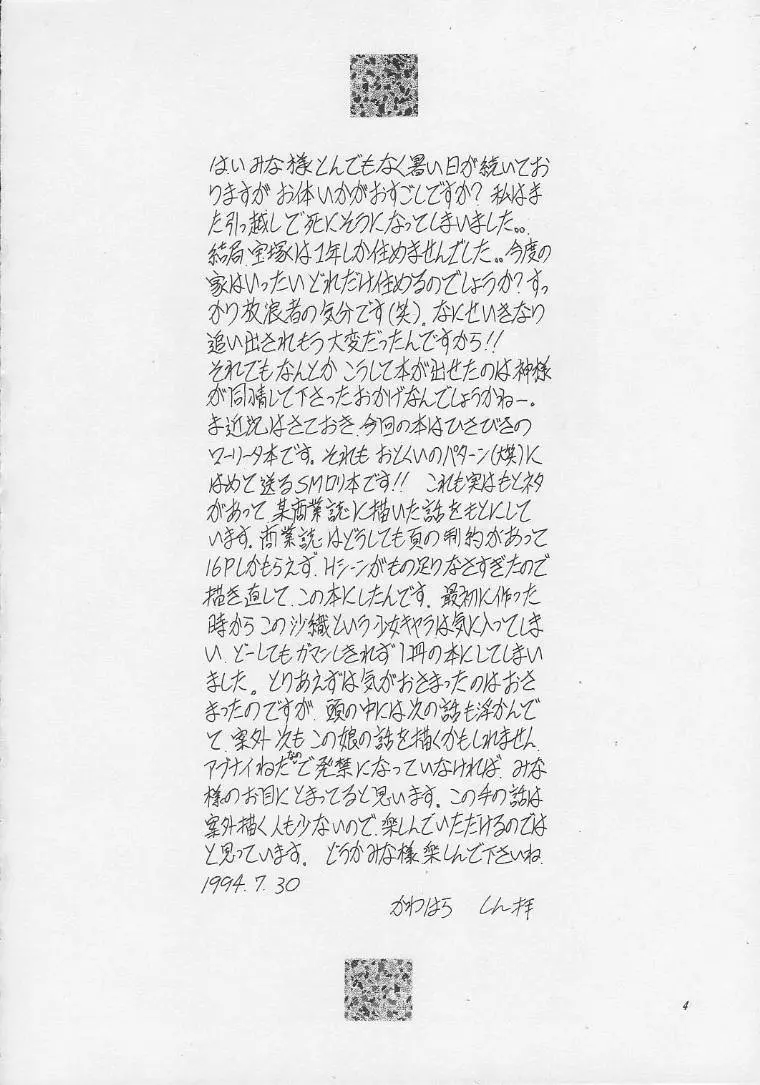 はい みな様 とんでもなく暑い日が続いてお
りますが お体いかがおすごしですか? 私はま
た引っ越しで死にそうになってしまいました。。
結局 宝塚は1年しか住めませんでした。。今度の
家はいったいどれだけ住めるのでしょうか?すっ
かり放浪者の気分です(笑)。なにせいきなり
追い出されもう大変だったんですから!!
それでもなんとか こうして本が出せたのは神様
が同情して下さったおかげなんでしょうかねー。
ま近況はさておき、今回の本はひさびさの
ローリータ本です。それも おとくいのパターン(大笑)に
はめて送るSMロリ本です!! これも実はもとネタ
があって 某商業誌に描いた話をもとにして
います。商業誌はどうしても頁の制約があって
16Pしかもらえず、Hシーンがもの足りなさすぎたので
描き直して、この本にしたんです。最初に作った
時から この沙織という少女キャラは気に入ってしま
い、どーしてもガマンしきれず1冊の本にしてしまい
ました。とりあえずは気がおさまったのはおさ
まったのですが、頭の中には次の話も浮かんで
て、案外次もこの娘の話を描くかもしれません。
アブナイねたなので発禁になっていなければ、みな
様のお目にとまってると思います。この手の話は
案外描く人も少ないので、楽しんでいただけるのでは
と思っています。どうかみな様楽しんで下さいね
1994.7.30
かわはら しん拝
4